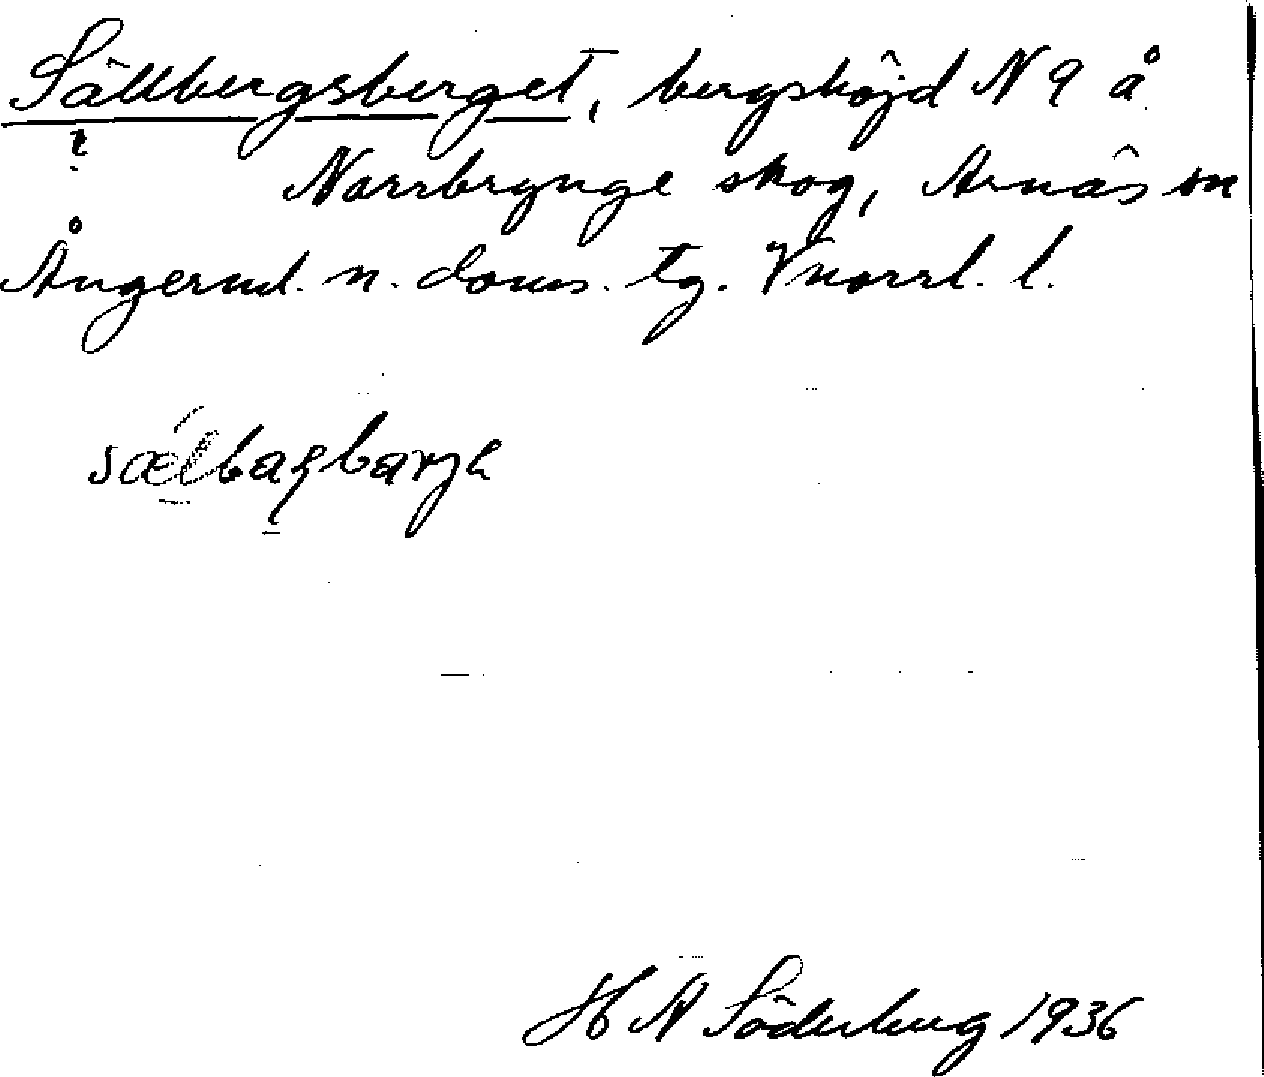 Sällbergsberget, bergshöjd N 9 å
Norrbrynge skog, Arnäs sn
Ångerml. n. doms. tg. Vnorrl. l.
H A Söderberg 1936